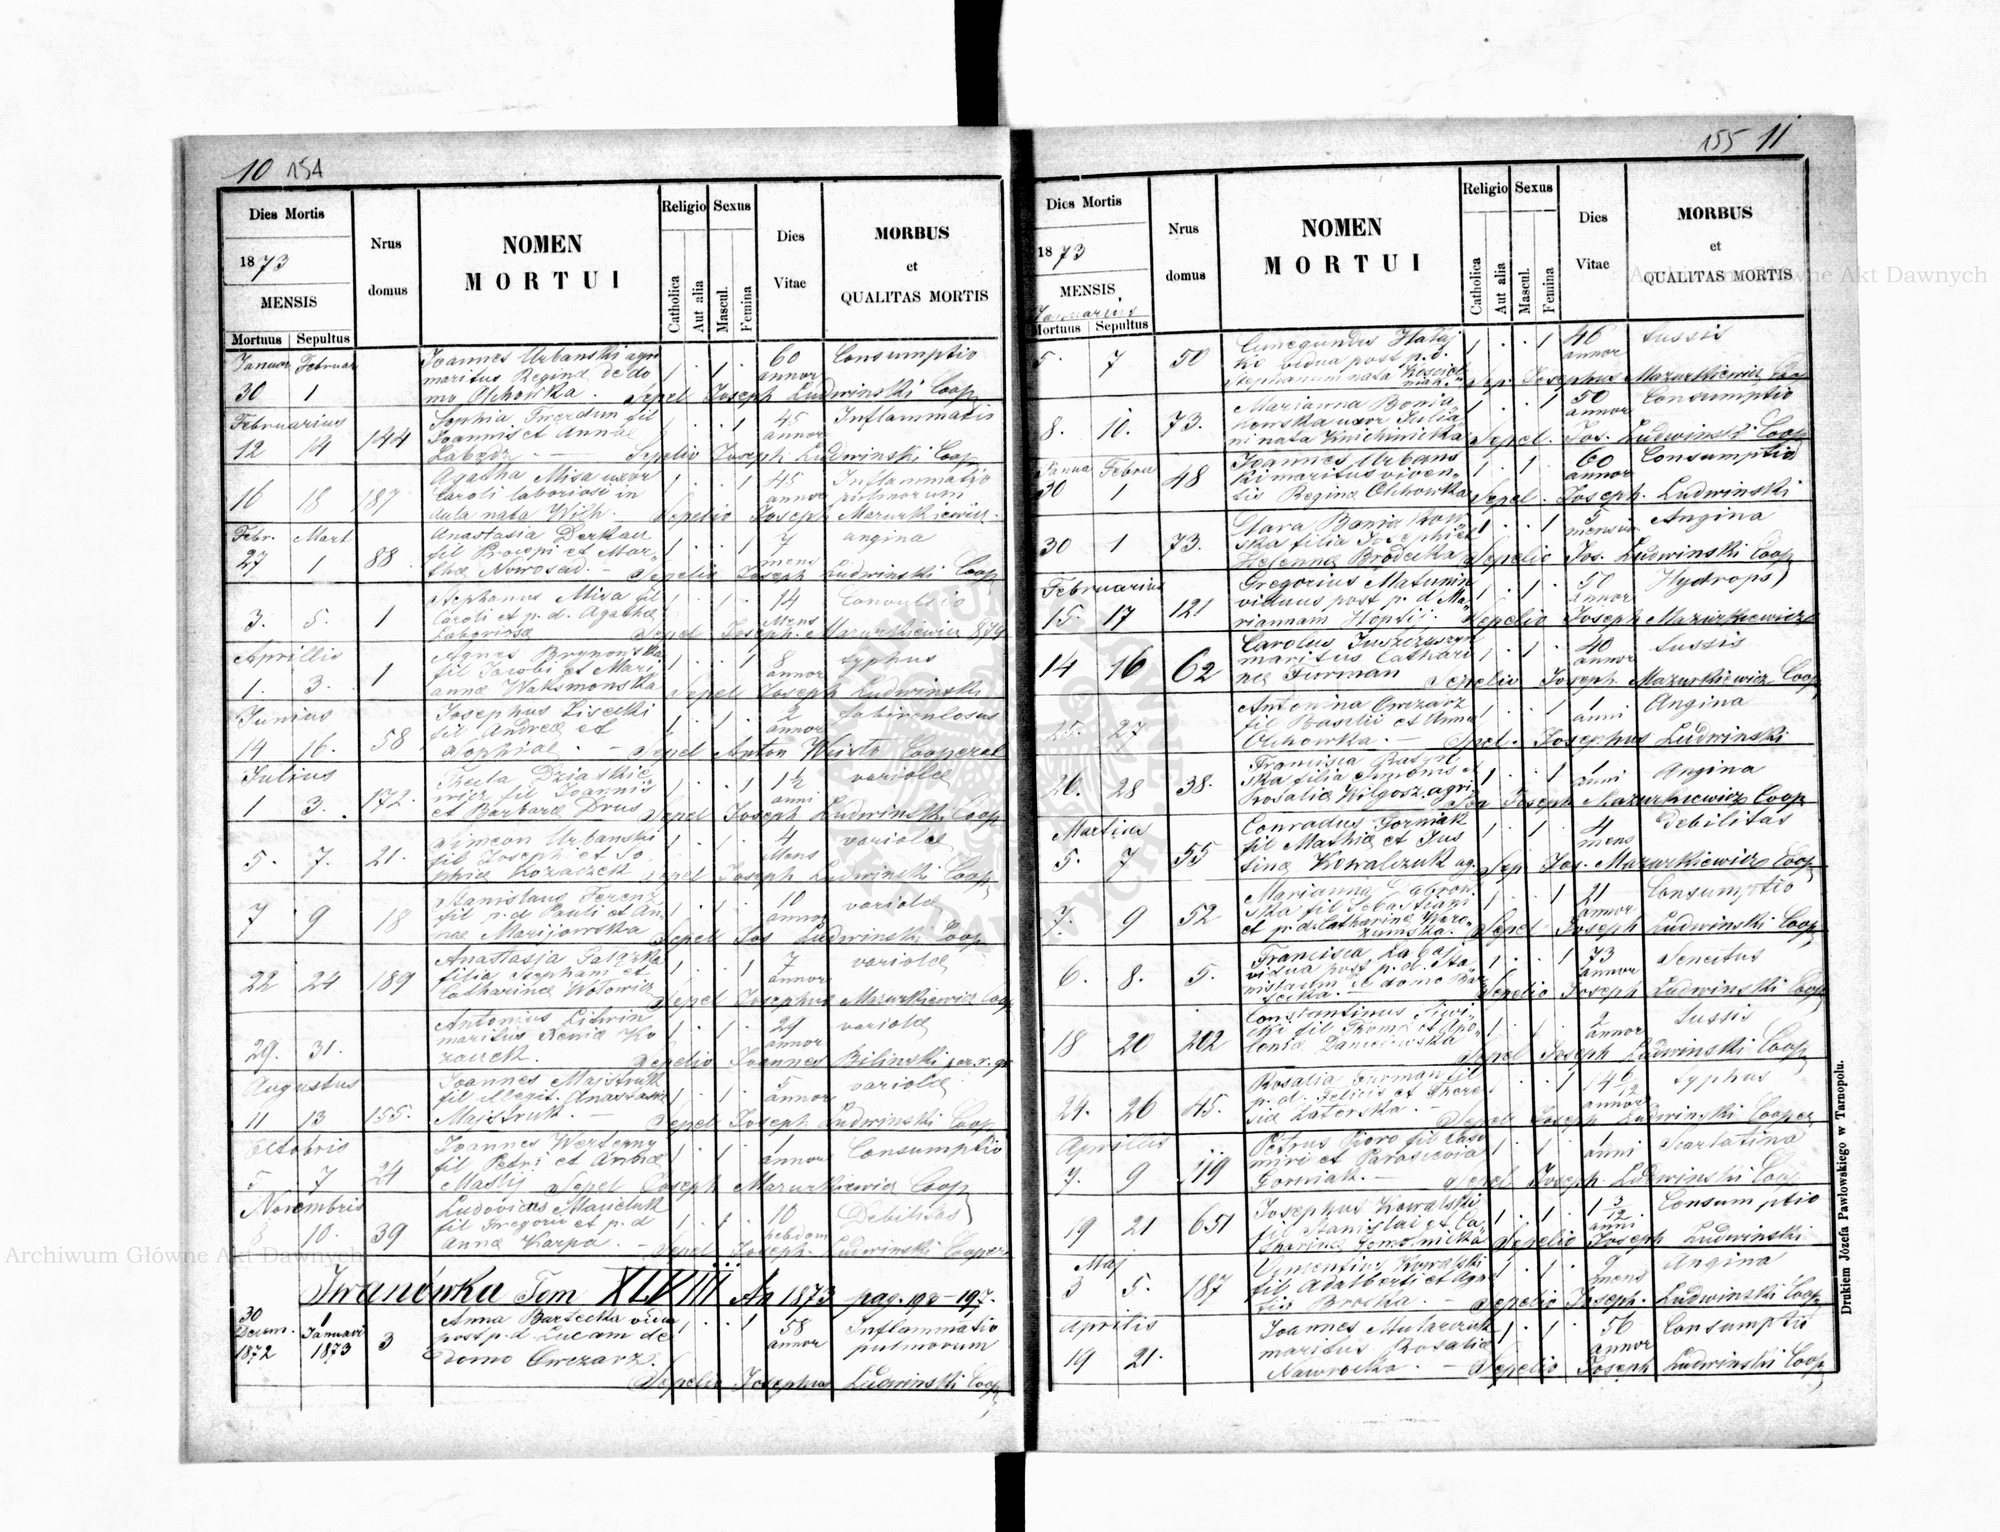 10 154
Dies Mortis
1873
MENSIS
Mortuus Sepultus
Nrus
domus
NOMEN
MORTUI
Religio Sexus
Catholica
Aut alia
Mascul.
Femina
Dies
Vitae
MORBUS
et
QUALITAS MORTIS
Januar Februar
30 1
Joannes Urbanski agri
maritus Regina de do
mo Olchowka. Sepel Joseph Ludwinski Coop
60
annor
Consumptio
Februarius
12 14 144
Sophia Twerdun fil
Joannis et Annae
Sepelio Joseph Ludwinski Coop
45
annor
Inflammatio
16 18 187
Agatha Misa uxor
Caroli laboriosi in
aula nata Wilk. Sepelio Joseph Mazurkiewicz
45
annor
Inflammatio
pulmorum
Febr. Mart
27 1 88
Anastasia Derkacz
fil Procopi et Mar
tha Nowosad. Sepelio Joseph Ludwinski Coop
7
mens
angina
3. 5. 1
Stephanus Misa fil
Caroli et p. d. Agatha
Laboriosa Sepel Joseph Mazurkiewicz
14
Mens
Convulsio
Aprillis
1. 3. 1
fil Jacobi et Mari
anna Waksmonska Sepel Joseph Ludwinski
8
annor
typhus
Junius
14 16. 58
Josephus Lisecki
fil Andrea et
Sophiae. Sepel Anton Weisto Cooperat
2
annor
Julius
1 3. 172.
fil Joannis
et Barbara Drus Sepel Joseph Ludwinski Coop
1½
anni
variola
5. 7. 21.
Simeon Urbanski
fil Josephi et So
phia Kozaczek Sepel Joseph Ludwinski Coop
4
Mens
variola
7 9 18
Stanislaus Ferenz
fil p. d Pauli et An
nae Marijowska Sepel Jos Ludwinski Coop
10
annor
variola
22 24 189
Anastasia
filia Stephani et
Catharina Wolowic Sepel Josephus Mazurkiewicz Coop
7
annor
variola
29. 31.
Antonius Litwin
maritus Xenia Ko
zaczek. Sepelio Joannes Bilinski par. r. gr
29
annor
variola
Augustus
11 13 155.
Joannes Majstruk
fil illegit. Anastasia
Majstruk. Sepel Joseph Ludwinski Coop
5
annor
variola
Octobris
5 7 24
Joannes
fil Petri et Anna
Sepel Joseph Mazurkiewicz Coop
1
annor
Consumptio
Novembris
8 10. 39
Ludovicus
fil Gregorii et p. d
Anna Karpa. Sepel Joseph Ludwinski Cooper
10
hebdom
Debilitas
Iwanówka Tom XLVIII An 1873 pag. 193-197.
30 1
Decem. Januari
1872 1873 3
Anna Bartecka vidua
post p. d Lucam de
domo Owczarz.
Sepelio Josephus Ludwinski Coop
58
annor
Inflammatio
pulmorum
155 11
Dies Mortis
1873
MENSIS
Januarius
Mortuus Sepultus
Nrus
domus
NOMEN
MORTUI
Religio Sexus
Catholica
Aut alia
Mascul.
Femina
Dies
Vitae
MORBUS
et
QUALITAS MORTIS
5. 7 50
Cunegundis Hataj
ko vidua post p. d.
Stephanum nata Sep. Josephus Mazurkiewicz Coo
46
annor
tussis
8. 10. 73.
Marianna Bonia
kowska uxor Julia
ni nata Sepel. Jos. Ludwinski Coop
50
annor
Consumptio
Janua Febru
30 1 48
Joannes Urbans
ki maritus viven
tis Regina Olchowka Sepel. Joseph. Ludwinski
60
annor
Consumptio
30 1 73.
Clara Boniakow
ska filia Josephi et
Helenna Brodecka Sepelio Jos. Ludwinski Coop
5
mensiu
Angina
Februarius
15. 17 121
Gregorius
viduus post p. d Ma
riannam Sepelio Joseph Mazurkiewicz
50
annor
Hydrops
14 16 62
Carolus Juszczyszyn
maritus Cathari
na Furman Sepelio Joseph Mazurkiewicz Coop
40
annor
tussis
25. 27
Antonina Owczarz
fil Basilii et Anna
Olchowka. Spel. Josephus Ludwinski
1
anni
Angina
26. 28 38.
Francisca
ska filia Simonis et
Rosalia Wilgosz agri Joseph Mazurkiewicz Coop
1
anni
Angina
Martius
5. 7 55
Conradus Gorniak
fil Mathia et Jus
tina Kowalczuk ag. Sep Jos. Mazurkiewicz Coop
4
mens
debilitas
7. 9 52
Marianna Dąbrow
ska fil Sebastiani
et p. d. Catharina Sepel Joseph Ludwinski Coop
21
annor
Consumptio
6. 8. 5.
Francisca
vidua post p. d. Sta
nislaum de domo Sepelio Joseph Ludwinski Coop
73
annor
Senectus
18 20 202
Constantinus
fil Thoma et Apo
lonia Danielewska Sepel Joseph Ludwinski Coop
2
annor
tussis
24. 26 45.
Rosalia Furman fil
p. d. Felicis et There
sia Zaterska. Sepelio Joseph Ludwinski Cooper
annor
typhus
Aprillis
7. 9 119
Petrus Pioro fil Casi
miri et Parascevia
Gorniak. Sepel Joseph. Ludwinski Coop
1
anni
Scarlatina
19 21 651
Josephus Kowalski
fil Stanislai et Ca
tharina Sepelio Joseph Ludwinski
1 3/12
anni
Consumptio
Maj
3 5. 187
Vincentius Kowalski
fil Adalberti et Agne
tis Sepelio Joseph. Ludwinski Coop
9
mens
Angina
Aprilis
19 21.
Joannes Mularczuk
maritus Rosalia
Nawrocka. Sepelio Joseph Ludwinski Coop
56
annor
Consumptio
Drukiem Józefa Pawłowskiego w Tarnopolu.
Archiwum Główne Akt Dawnych
Archiwum Główne Akt Dawnych